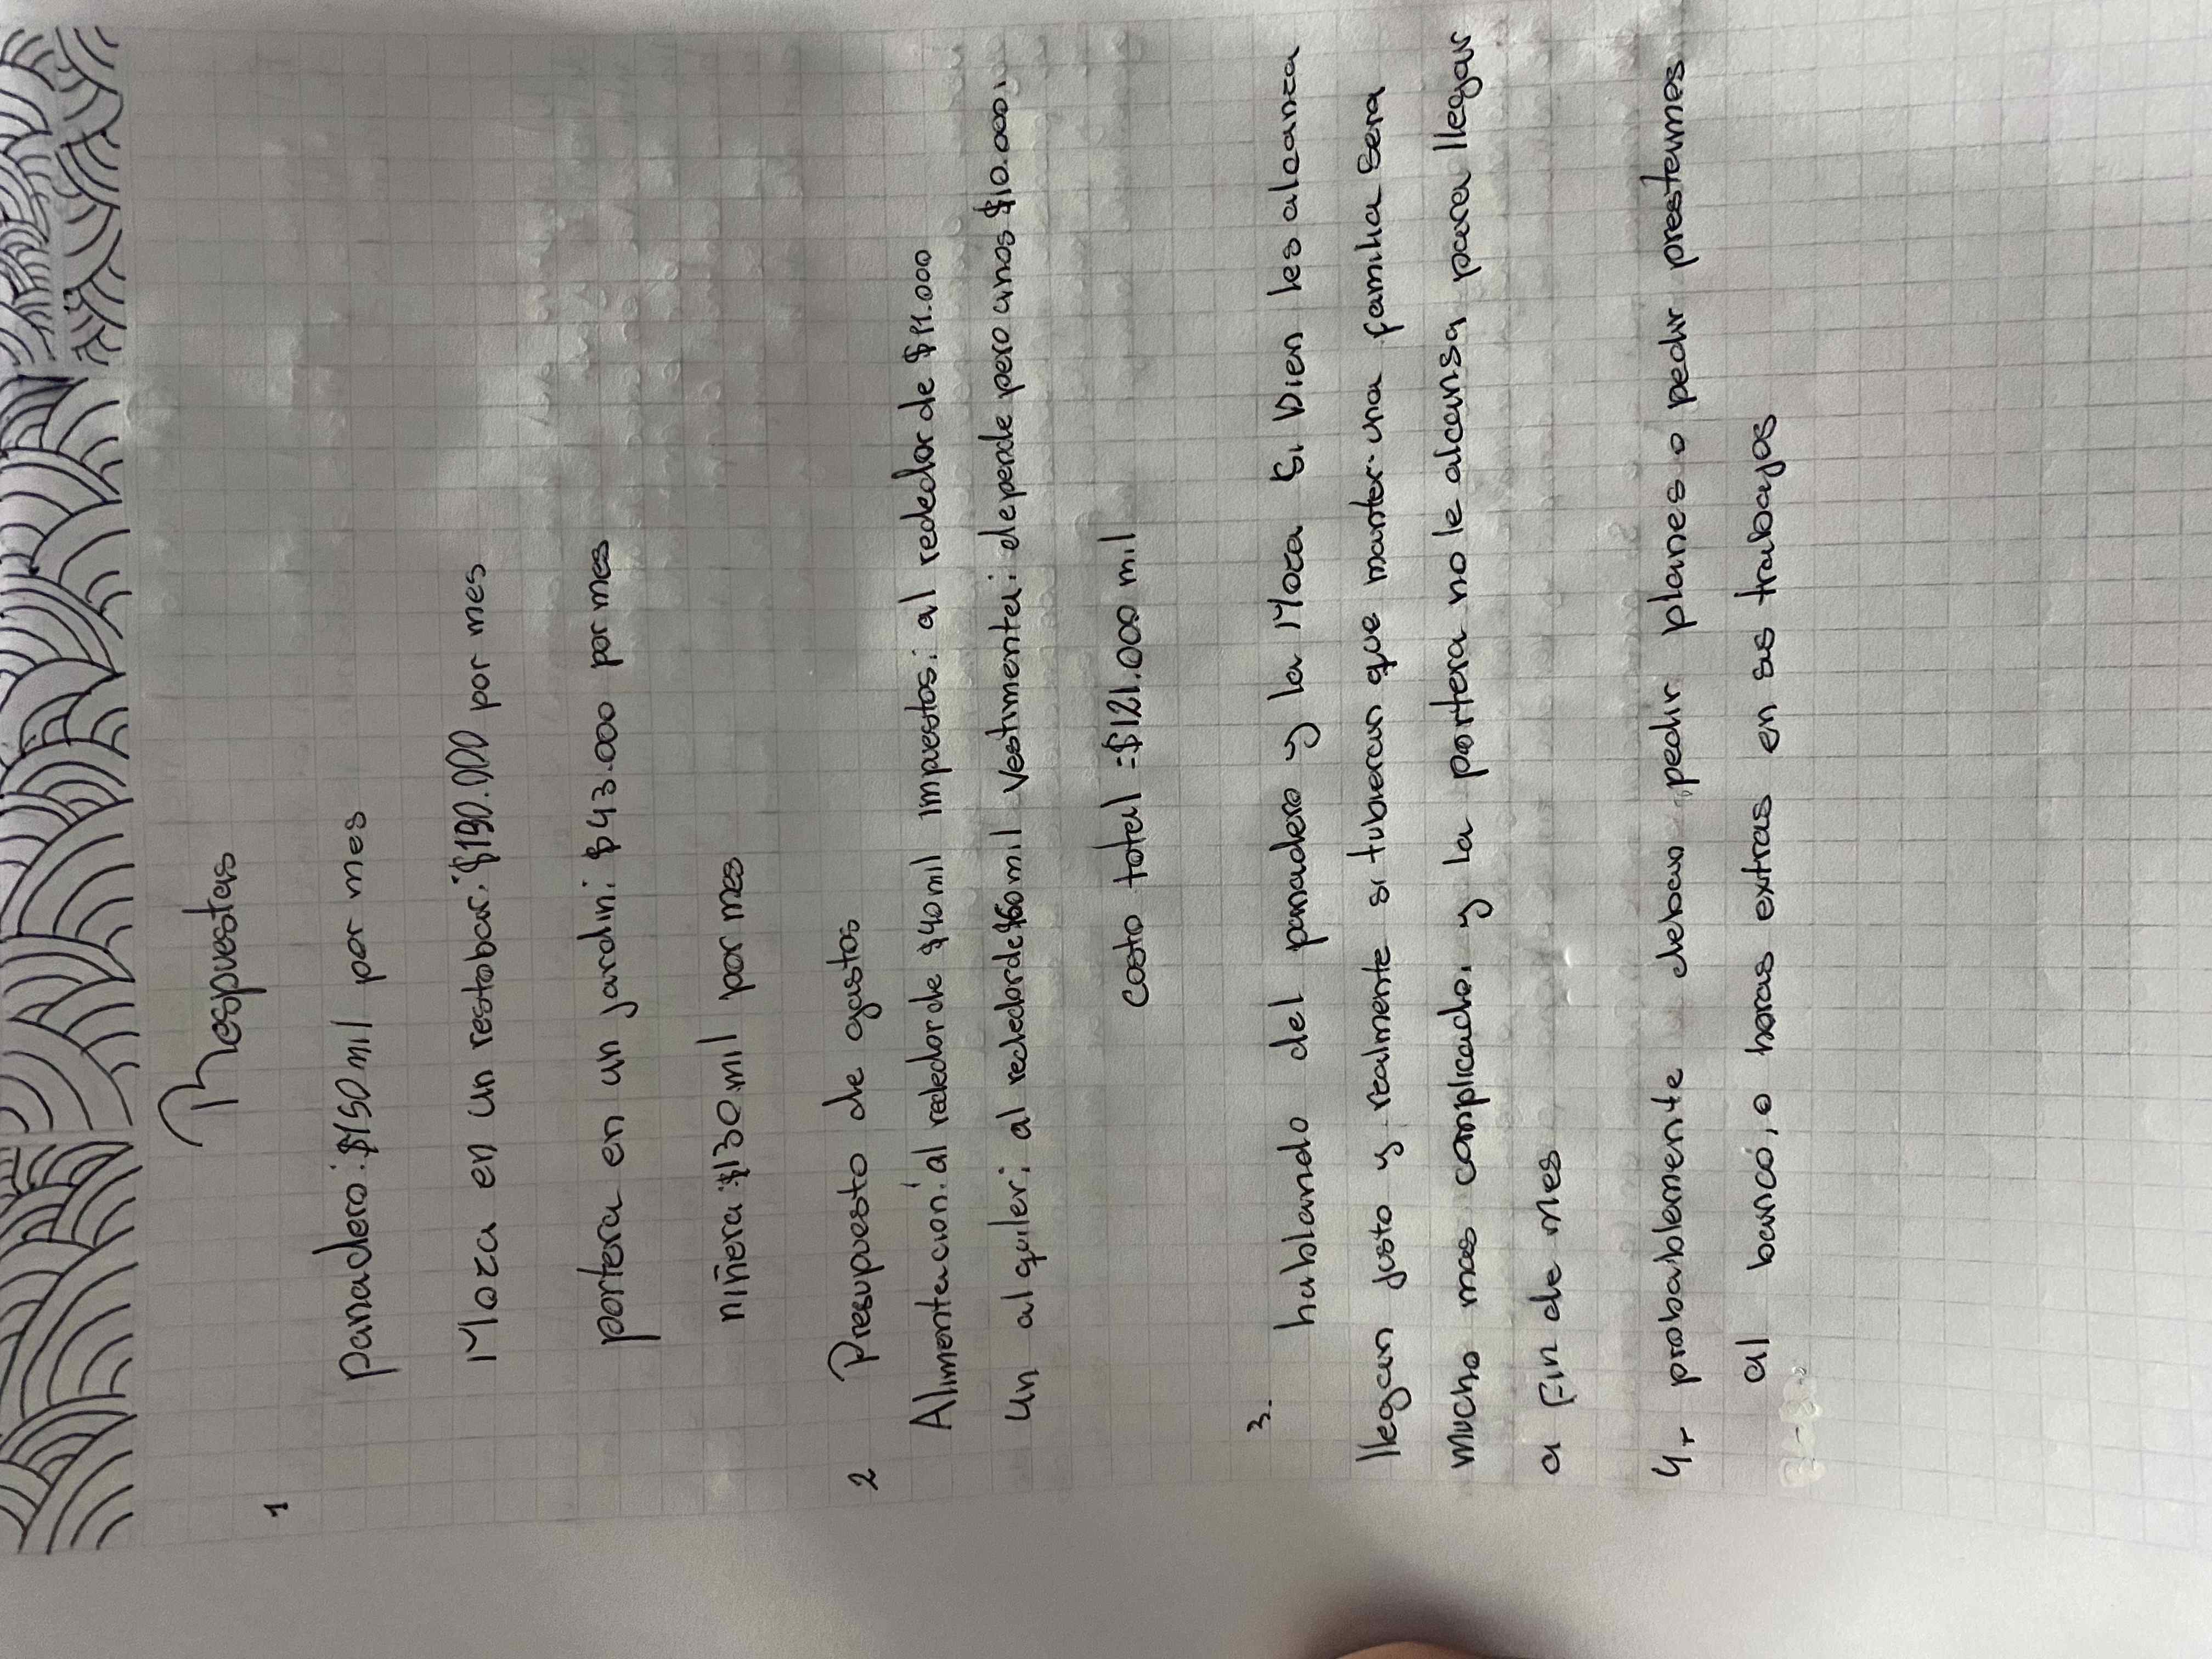 Respuestas
1
panadero: $150 mil por mes
Moza en un restobar: $190.000 por mes
portera en un jardin: $43.000 por mes
niñera: $130 mil por mes
2 Presupuesto de gastos
Alimentacion: al rededor de $40 mil impuestos: al rededor de $11.000
un alquiler: al rededor de $60 mil Vestimenta: depende pero unos $10.000,
costo total = $121.000 mil
3. hablando del panadero y la Moza si bien les alcanza
llegan justo y realmente si tubieran que manter una familia sera
mucho mas complicado, y la portera no le alcansa para llegar
a fin de mes
4. probablemente deban pedir planes o pedir prestamos
al banco, o horas extras en sus trabajos